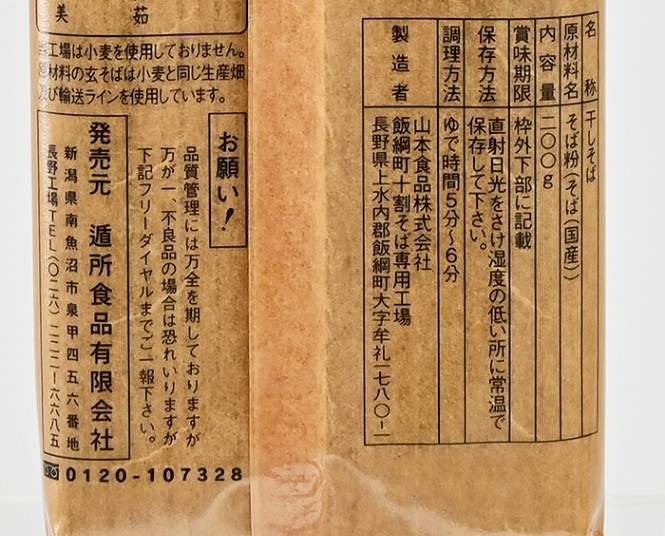 名称 干しそば
原材料名 そば粉(そば(国産))
内容量 二〇〇g
賞味期限 枠外下部に記載
保存方法 直射日光をさけ湿度の低い所に常温で
保存して下さい。
調理方法 ゆで時間5分〜6分
製造者 山本食品株式会社
飯綱町十割そば専用工場
長野県上水内郡飯綱町大字牟礼一七八〇-一
美 茹
工場は小麦を使用しておりません。
材料の玄そばは小麦と同じ生産畑
び輸送ラインを使用しています。
お願い!
品質管理には万全を期しておりますが
万が一、不良品の場合は恐れいりますが
下記フリーダイヤルまでご一報下さい。
発売元 遁所食品有限会社
新潟県南魚沼市泉甲四五六番地
長野工場TEL(〇二六)二二二一六六八五
0120-107328